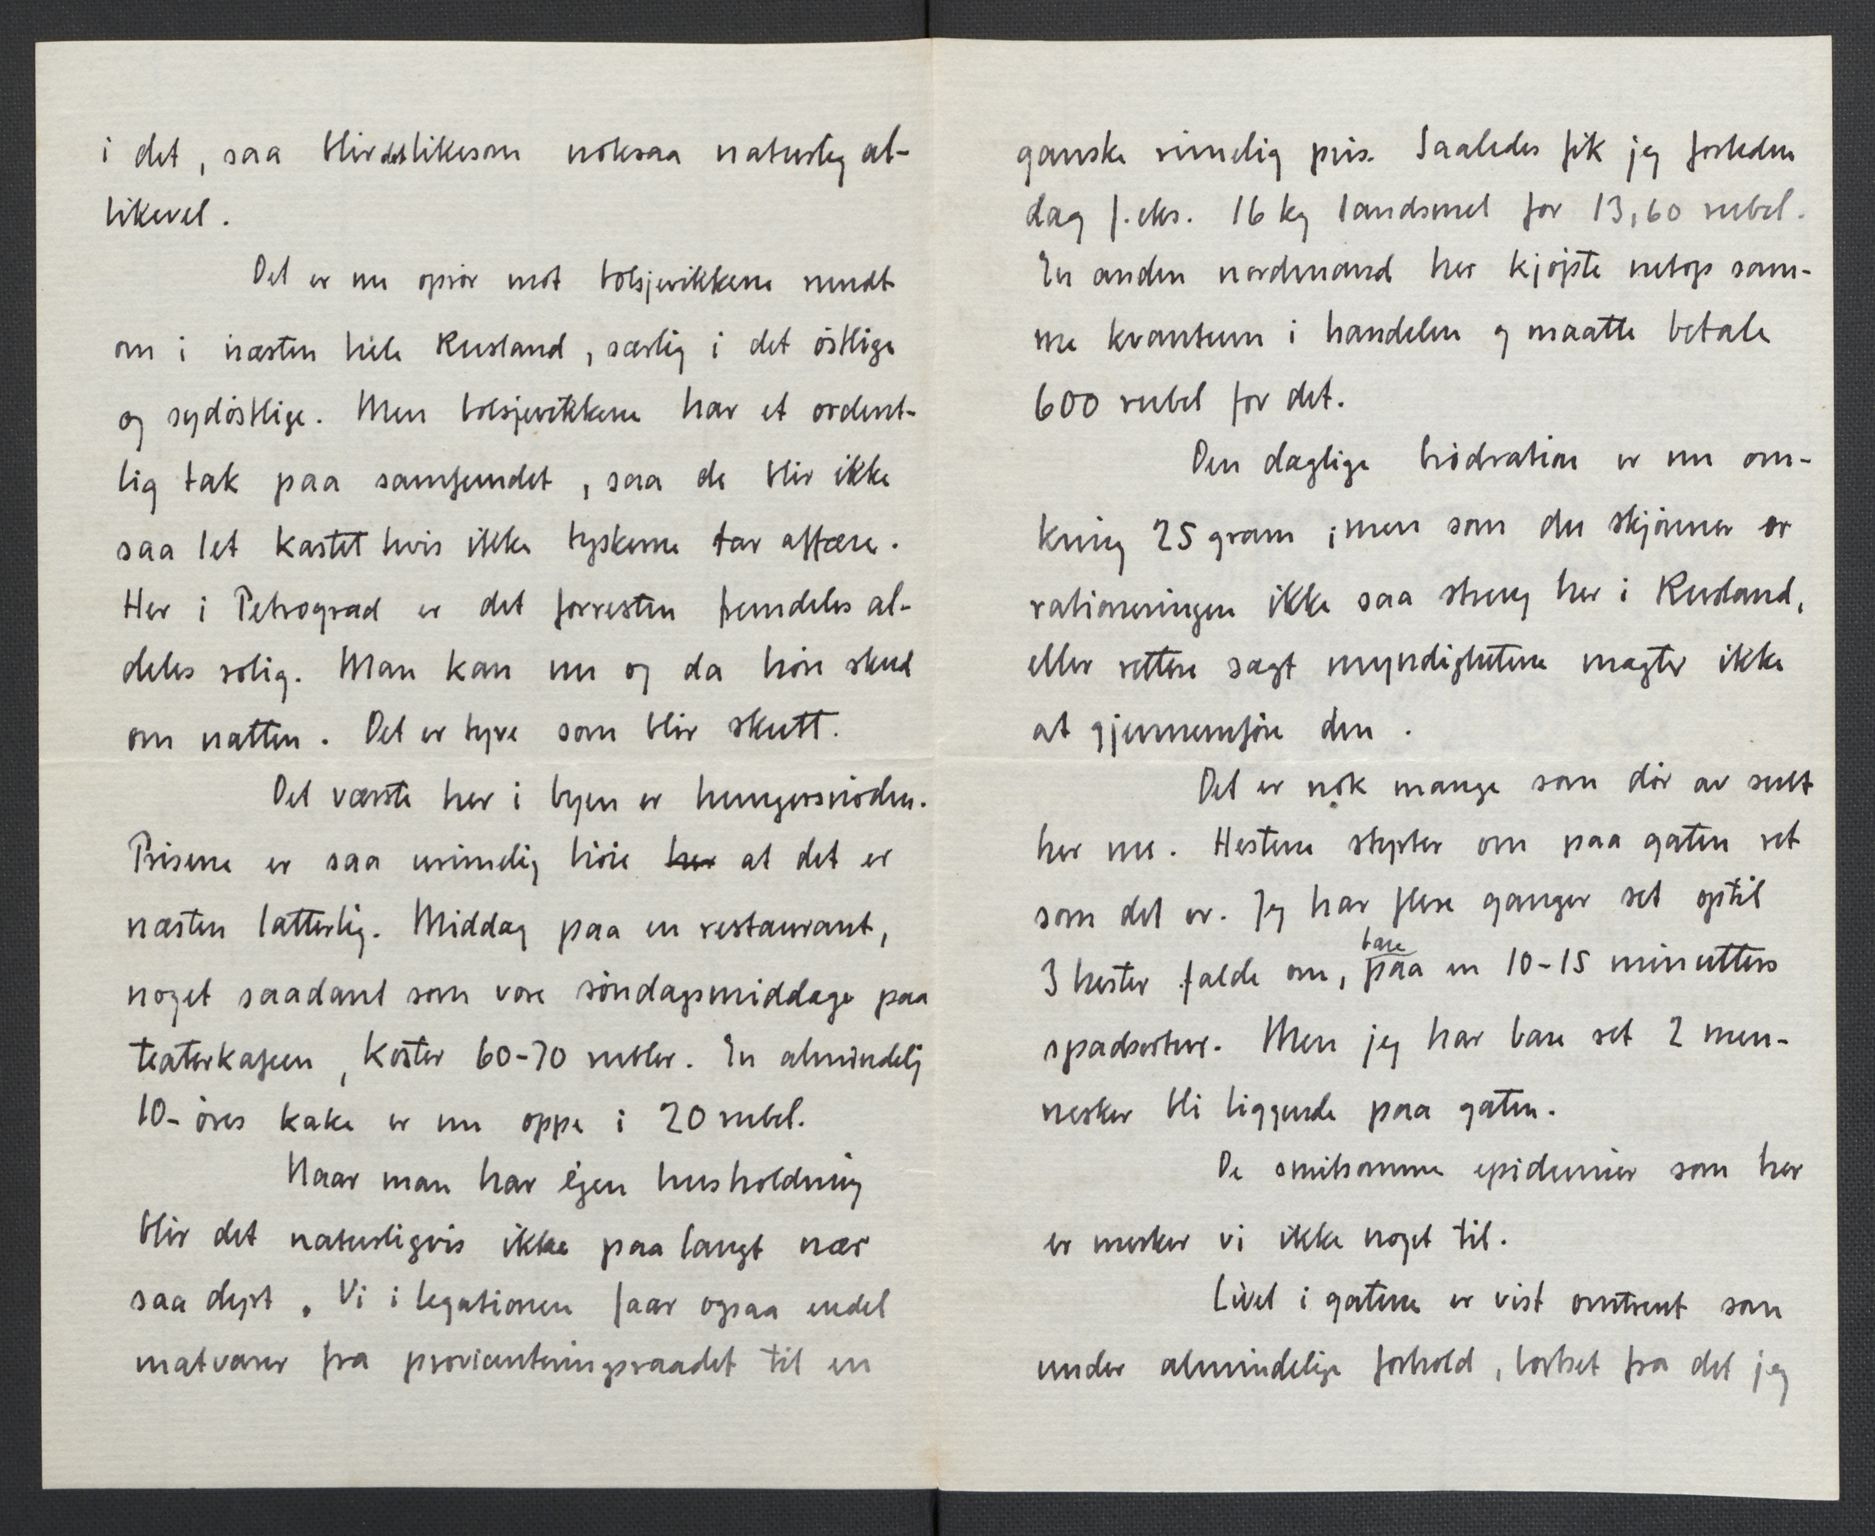 i det, saa blir det likesom noksaa naturlig al-
likevel.
Det er nu oprør mot bolsjevikkene rundt
om i næsten hele Rusland, særlig i det østlige
og sydøstlige. Men bolsjevikkene har et ordent-
lig tak paa samfundet, saa de blir ikke
saa let kastet hvis ikke tyskerne tar affære.
Her i Petrograd er det forresten fremdeles al-
deles rolig. Man kan nu og da høre skud
om natten. Det er tyve som blir skutt.
Det værste her i byen er hungersnøden.
Prisene er saa urimelig høie her at det er
næsten latterlig. Middag paa en restaurant,
noget saadant som vore søndagsmiddage paa
teaterkafeen, koster 60-70 rubler. En almindelig
10-øres kake er nu oppe i 20 rubel.
Naar man har egen husholdning
blir det naturligvis ikke paa langt nær
saa dyrt. Vi i legationen faar ogsaa endel
matvarer fra provianteringsraadet til en
ganske rimelig pris. Saaledes fik jeg forleden
dag f.eks. 16 kg landsmel for 13,60 rubel.
En anden nordmand her kjøpte netop sam-
me kvantum i handelen og maatte betale
600 rubel for det.
Den daglige brødration er nu om-
kring 25 gram; men som du skjønner er
rationeringen ikke saa streng her i Rusland,
eller rettere sagt myndighetene magter ikke
at gjennemføre den.
Det er nok mange som dør av sult
her nu. Hestene stuper om paa gaten ret
som det er. Jeg har flere ganger set optil
3 hester falde om, bare paa en 10-15 minutters
spadsertur. Men jeg har bare set 2 men-
nesker bli liggende paa gaten.
De smitsomme epidemier som her
er merker vi ikke noget til.
Livet i gatene er vist omtrent som
under almindelige forhold, bortset fra det jeg